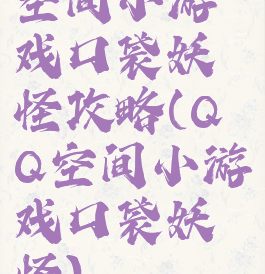 空间小游
戏口袋妖
怪攻略(Q
Q空间小游
戏口袋妖
怪)